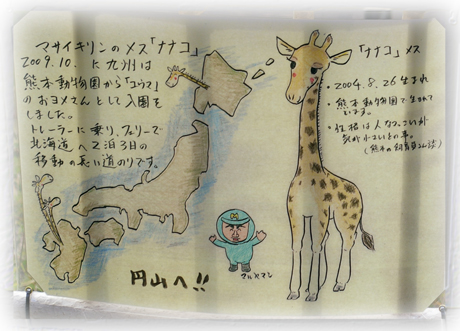 マサイキリンのメス「ナナコ」
2009.10. に九州は
熊本動物園から「ユウマ」
のおヨメさんとして入園を
しました。
トレーラーに乗り、フェリーで
北海道へ 2泊3日の
移動の長い道のりです。
円山へ!!
マルヤマン
「ナナコ」メス
・2004.8.26生まれ
・熊本動物園で生まれて
います。
・性格は人なつっこいが
気が小さいキリン。